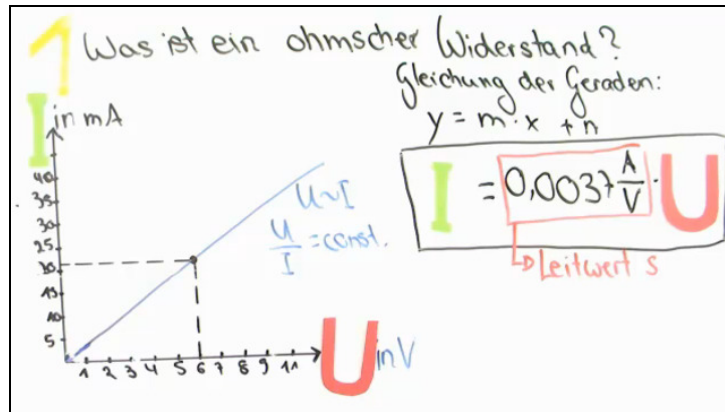 1 Was ist ein ohmscher Widerstand?
Gleichung der Geraden:
y = m · x + n
I in mA
I = 0,0037 A/V · U
Leitwert S
U ~ I
U/I = const.
40
35
30
25
20
15
10
5
1 2 3 4 5 6 7 8 9 11
U in V